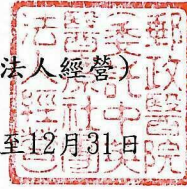 法人經營)
至12月31日
郵政醫院
委託中英
醫療社團
法人經營